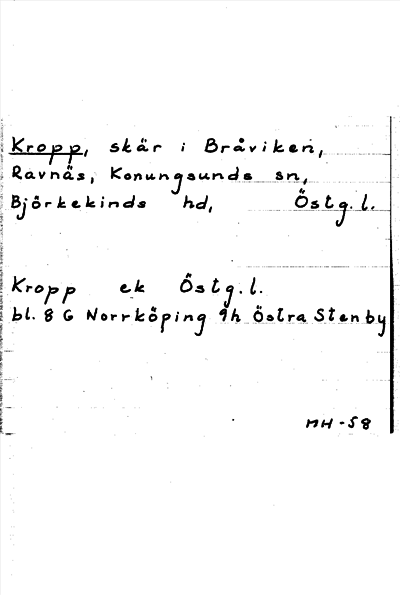 Kropp, skär i Bråviken,
Ravnäs, Konungsunds sn,
Björkekinds hd, Östg.l.
Kropp ek Östg.l.
bl. 8 G Norrköping 9h Östra Stenby
MH-58